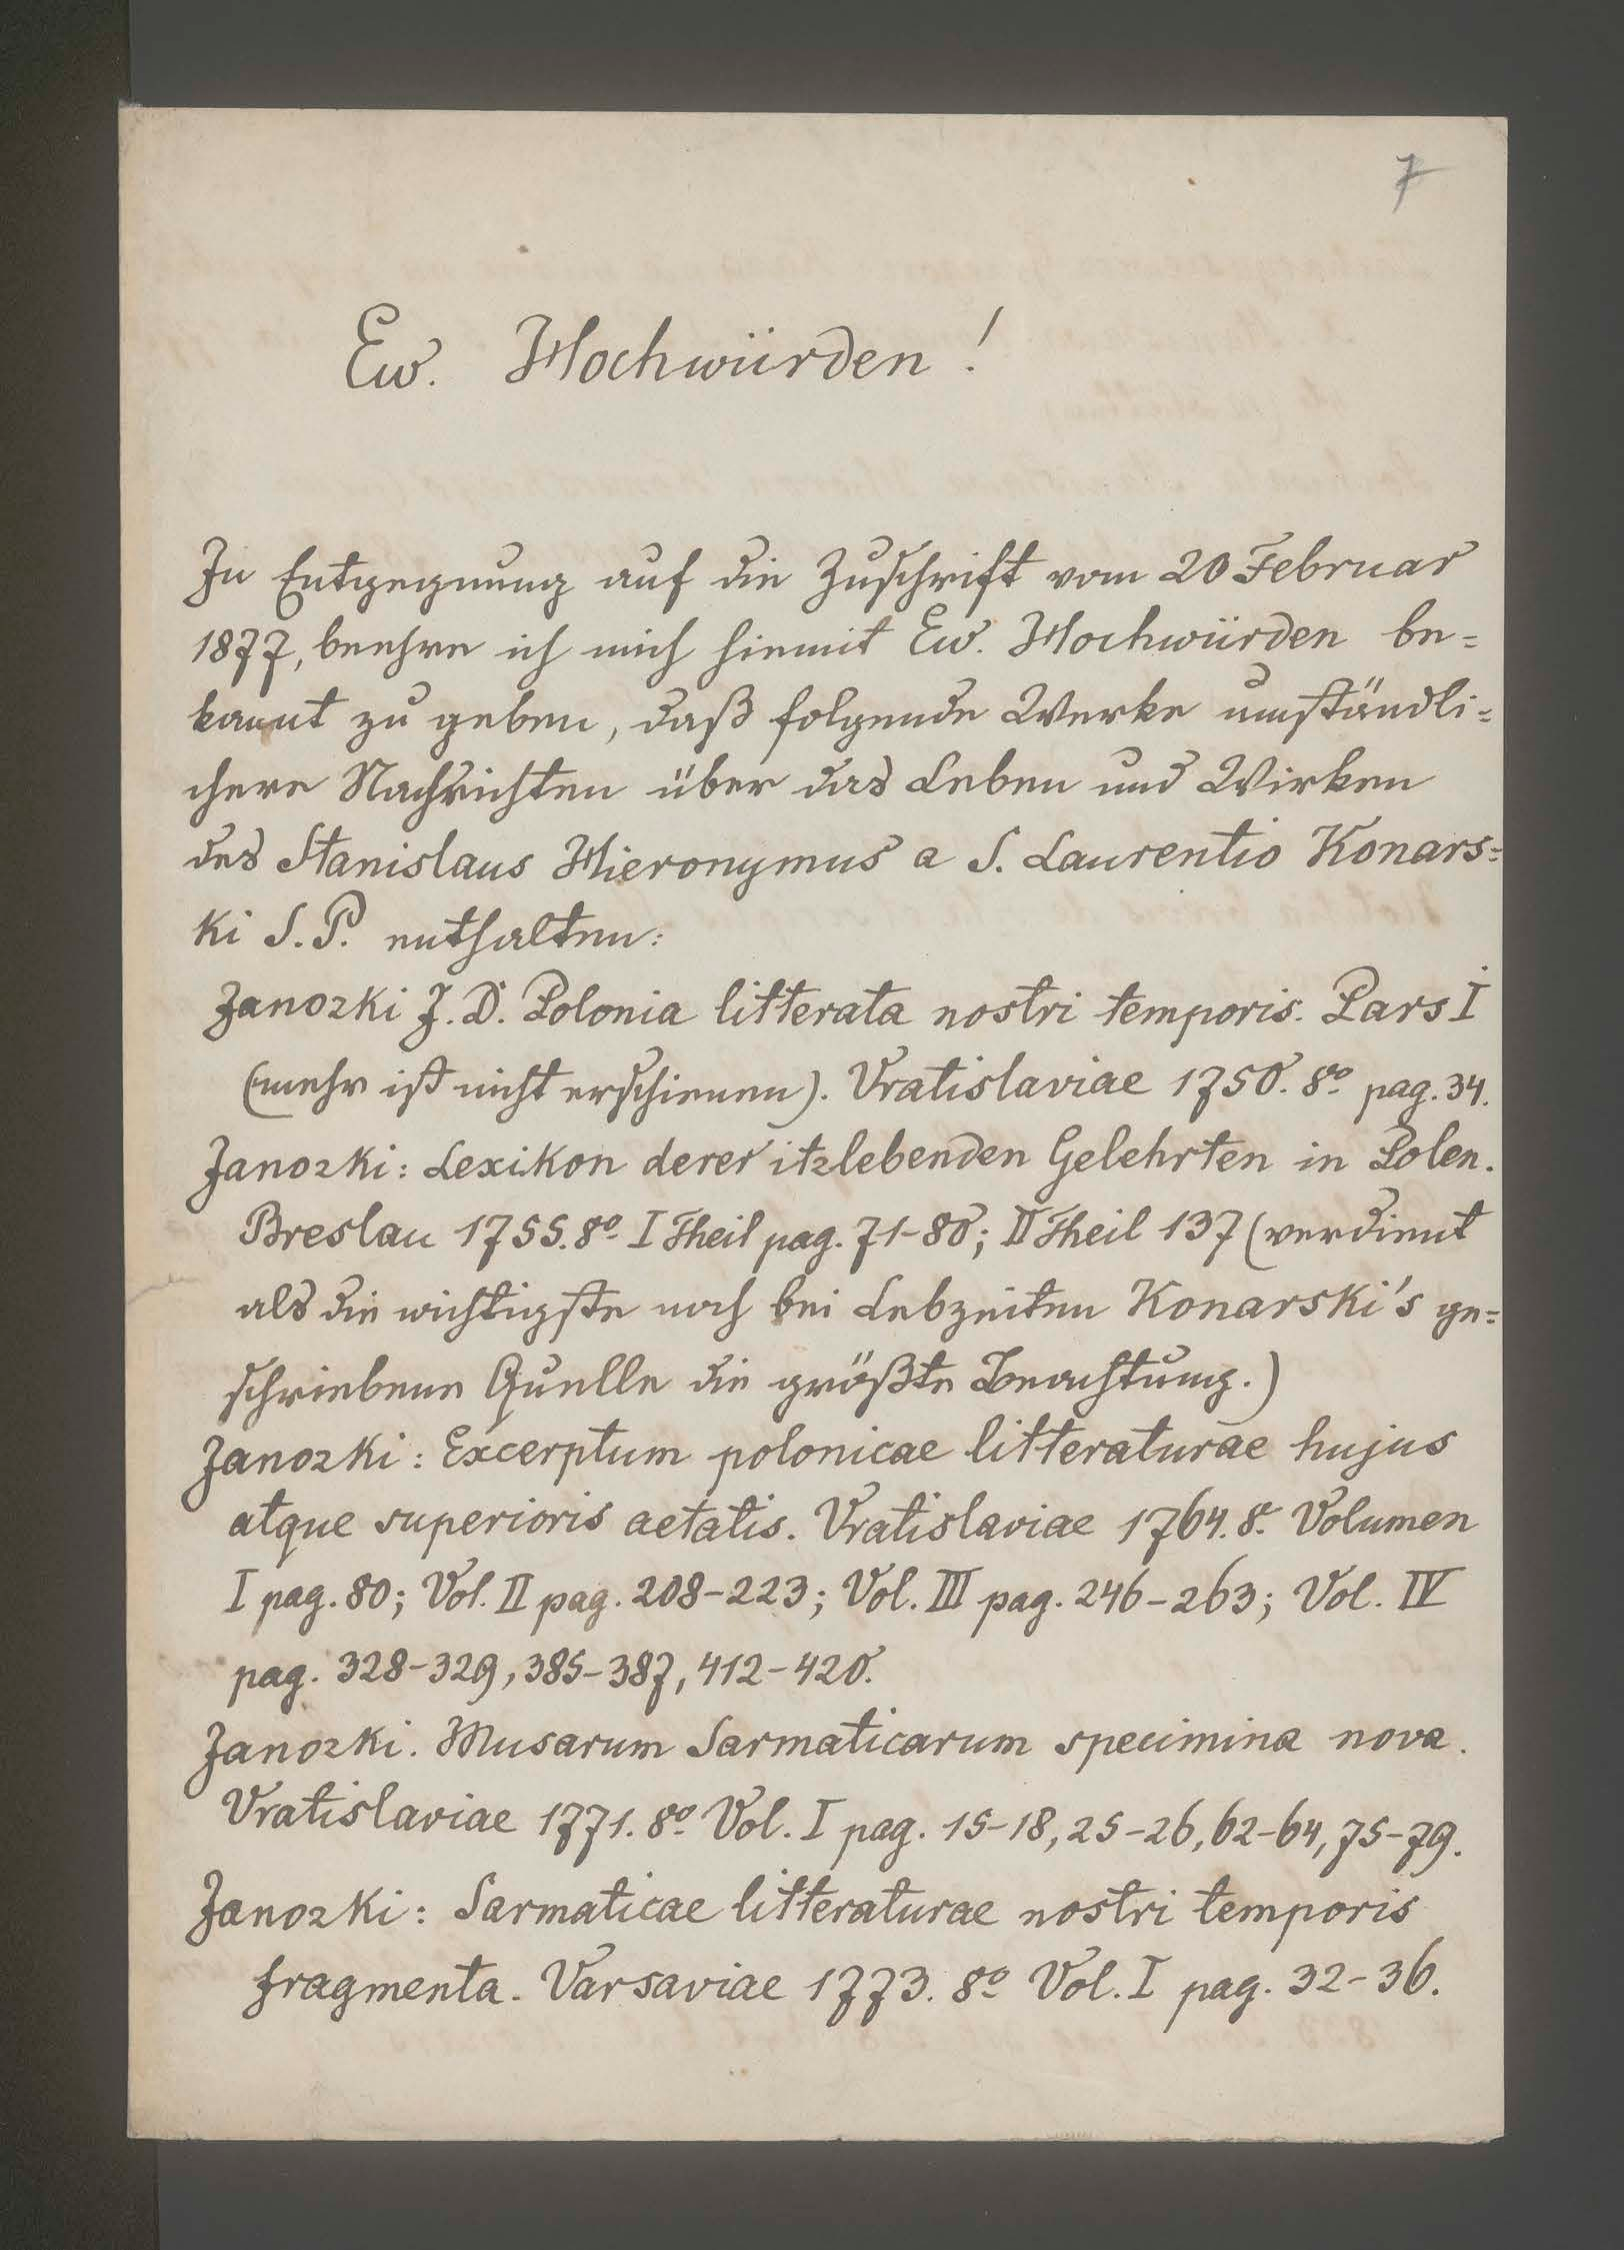 7
Ew. Hochwürden!
In Entgegnung auf die Zuschrift vom 20 Februar
1877, beehre ich mich hiemit Ew. Hochwürden be=
kannt zu geben, daß folgende Werke umständli=
chere Nachrichten über das Leben und Wirken
des Stanislaus Hieronymus a S. Laurentio Konars=
ki S. P. enthalten:
Janozki J. D. Polonia litterata nostri temporis. Pars I
(mehr ist nicht erschienen). Vratislaviae 1750. 8º pag. 34.
Janozki: Lexikon derer itzlebenden Gelehrten in Polen.
Breslau 1755. 8º I Theil pag. 71-80; II Theil 137 (verdient
als die wichtigste noch bei Lebzeiten Konarski's ge=
schriebene Quelle die größte Beachtung.)
Janozki: Excerptum polonicae litteraturae hujus
atque superioris aetatis. Vratislaviae 1764. 8º Volumen
I pag. 80; Vol. II pag. 208-223; Vol. III pag. 246-263; Vol. IV
pag. 328-329, 385-387, 412-420.
Janozki. Musarum Sarmaticarum specimina nova.
Vratislaviae 1771. 8º Vol. I pag. 15-18, 25-26, 62-64, 75-79.
Janozki: Sarmaticae litteraturae nostri temporis
fragmenta. Varsaviae 1773. 8º Vol. I pag. 32-36.